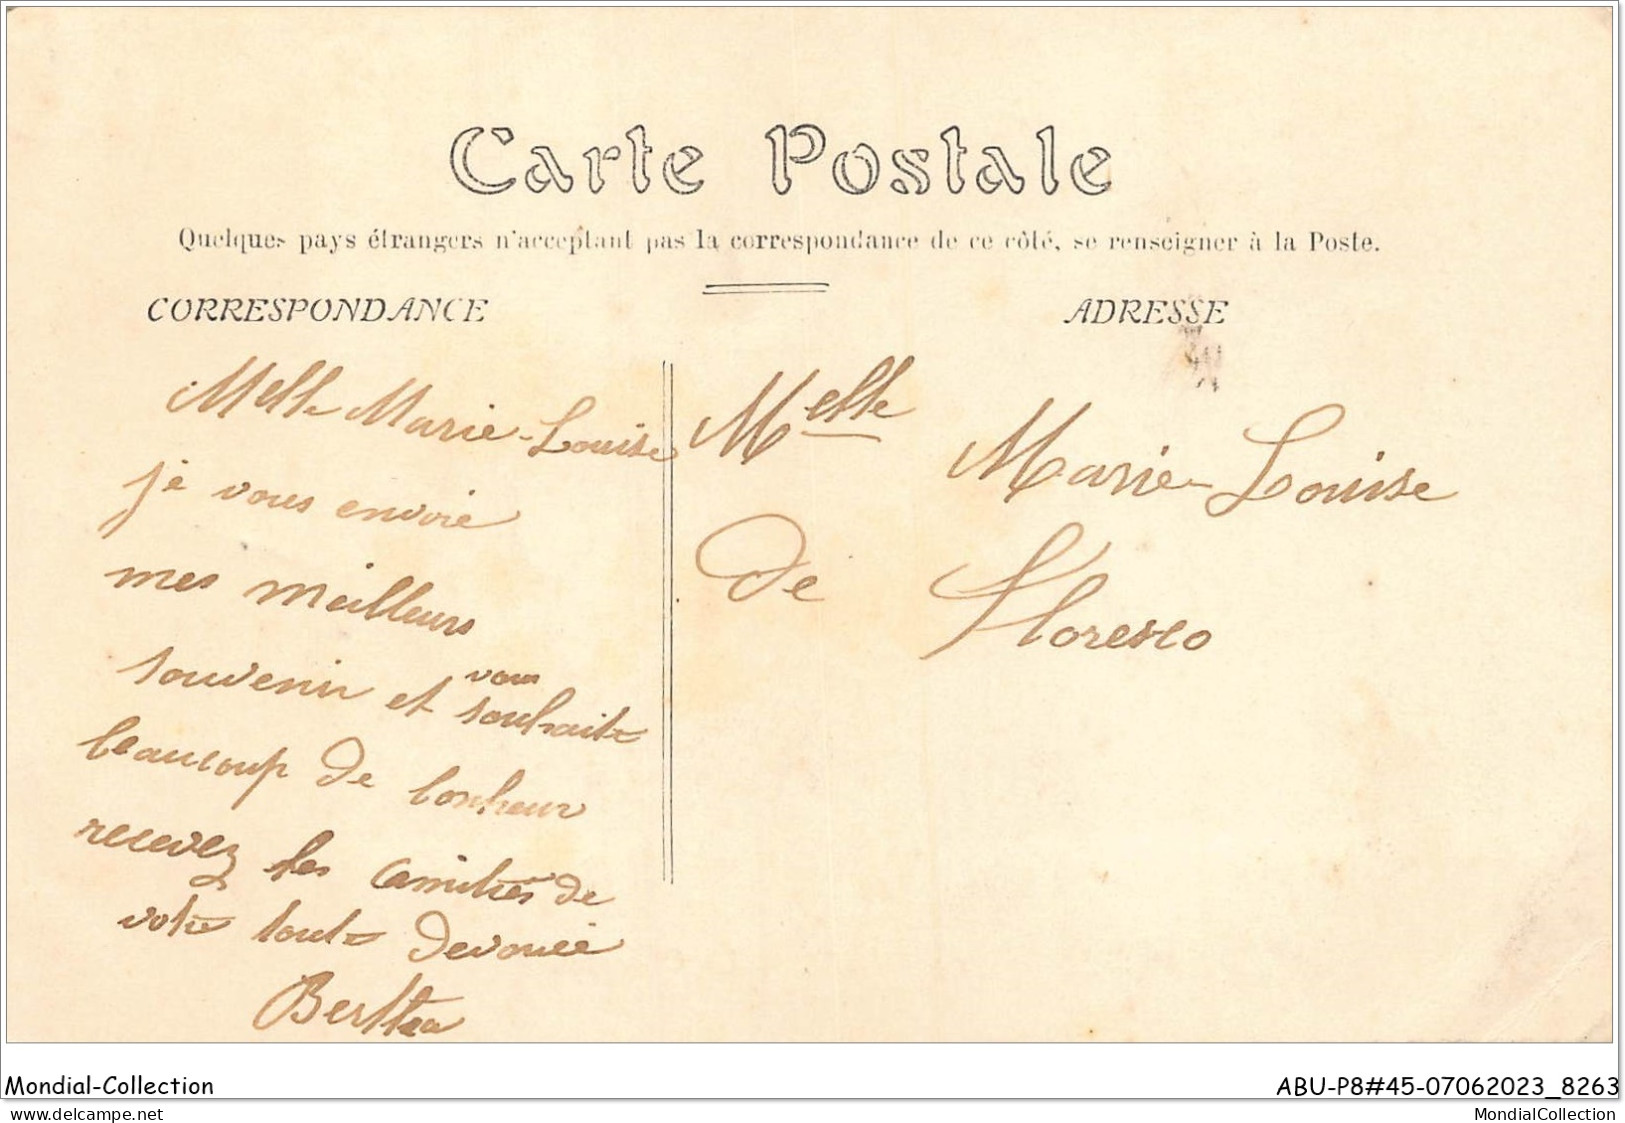 Carte Postale
Quelques pays étrangers n'acceptant pas la correspondance de ce côté, se renseigner à la Poste.
CORRESPONDANCE
ADRESSE
Melle Marie-Louise
je vous envoie
mes meilleurs
souvenir et vous souhaite
beaucoup de bonheur
recevez les amitiés de
votre toute devouée
Bertha
Melle Marie-Louise
de Floresco
Mondial-Collection
ABU-P8#45-07062023_8263
www.delcampe.net
MondialCollection